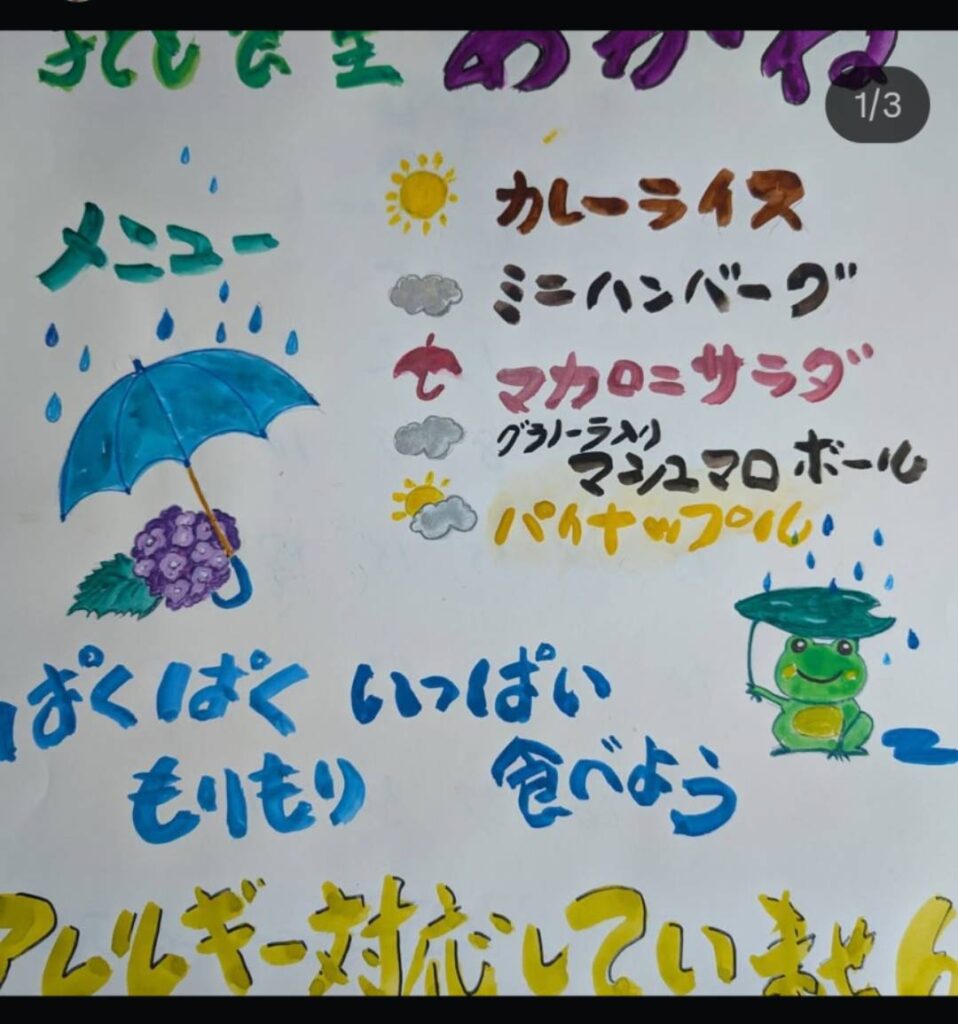 子ども食堂 あかね
1/3
メニュー
カレーライス
ミニハンバーグ
マカロニサラダ
グラノーラ入り
マシュマロボール
パイナップル
ぱくぱく いっぱい
もりもり 食べよう
アレルギー対応していません